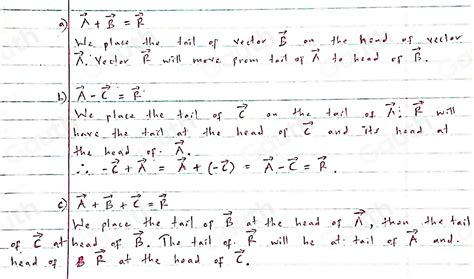 a) A⃗ + B⃗ = R⃗
We place the tail of vector B⃗ on the head of vector
A⃗. Vector R⃗ will move from tail of A⃗ to head of B⃗.
b) A⃗ - C⃗ = R⃗
We place the tail of C⃗ on the tail of A⃗; R⃗ will
have the tail at the head of C⃗ and its head at
the head of A⃗.
∴ -C⃗ + A⃗ = A⃗ + (-C⃗) = A⃗ - C⃗ = R⃗.
c) A⃗ + B⃗ + C⃗ = R⃗
We place the tail of B⃗ at the head of A⃗, then the tail
of C⃗ at head of B⃗. The tail of R⃗ will be at tail of A⃗ and
head of R⃗ at the head of C⃗.